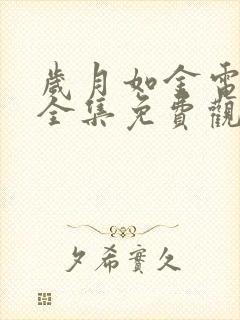 歲月如金電
全集免費觀
夕希實久